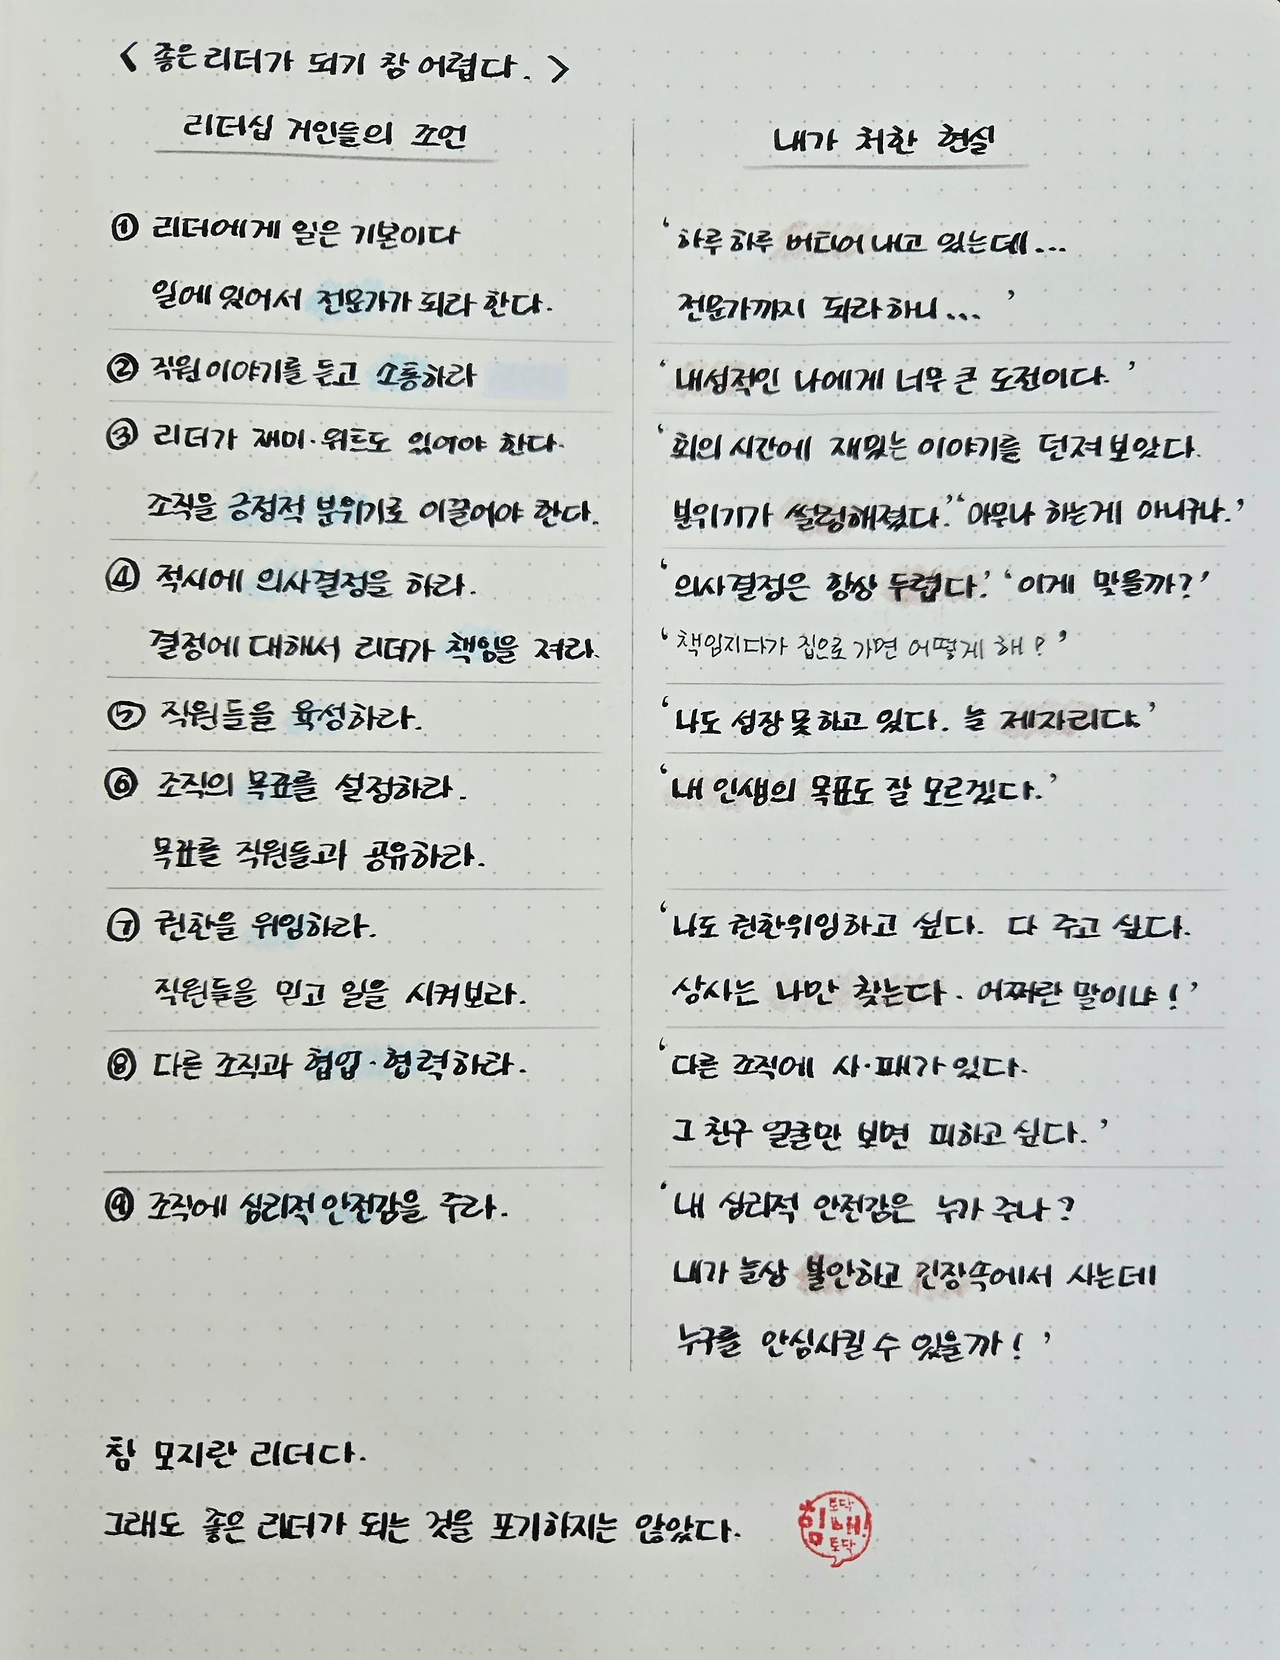 < 좋은 리더가 되기 참 어렵다. >
리더십 거인들의 조언
① 리더에게 일은 기본이다
일에 있어서 전문가가 되라 한다.
② 직원 이야기를 듣고 소통하라
③ 리더가 재미·위트도 있어야 한다.
조직을 긍정적 분위기로 이끌어야 한다.
④ 적시에 의사결정을 하라.
결정에 대해서 리더가 책임을 져라.
⑤ 직원들을 육성하라.
⑥ 조직의 목표를 설정하라.
목표를 직원들과 공유하라.
⑦ 권한을 위임하라.
직원들을 믿고 일을 시켜보라.
⑧ 다른 조직과 협업·협력하라.
⑨ 조직에 심리적 안전감을 주라.
내가 처한 현실
‘하루하루 버티어 내고 있는데...
전문가까지 되라하니...’
‘내성적인 나에게 너무 큰 도전이다.’
‘회의 시간에 재밌는 이야기를 던져 보았다.
분위기가 썰렁해졌다.’ ‘아무나 하는게 아니구나.’
‘의사결정은 항상 두렵다.’ ‘이게 맞을까?’
‘책임지다가 집으로 가면 어떻게 해?’
‘나도 성장 못하고 있다. 늘 제자리다.’
‘내 인생의 목표도 잘 모르겠다.’
‘나도 권한위임하고 싶다. 다 주고 싶다.
상사는 나만 찾는다. 어쩌란 말이냐!’
‘다른 조직에 사·패가 있다.
그 친구 얼굴만 보면 피하고 싶다.’
‘내 심리적 안전감은 누가 주나?
내가 늘상 불안하고 긴장속에서 사는데
누구를 안심시킬 수 있을까!’
참 모자란 리더다.
그래도 좋은 리더가 되는 것을 포기하지는 않았다.
토닥
힘내!
토닥